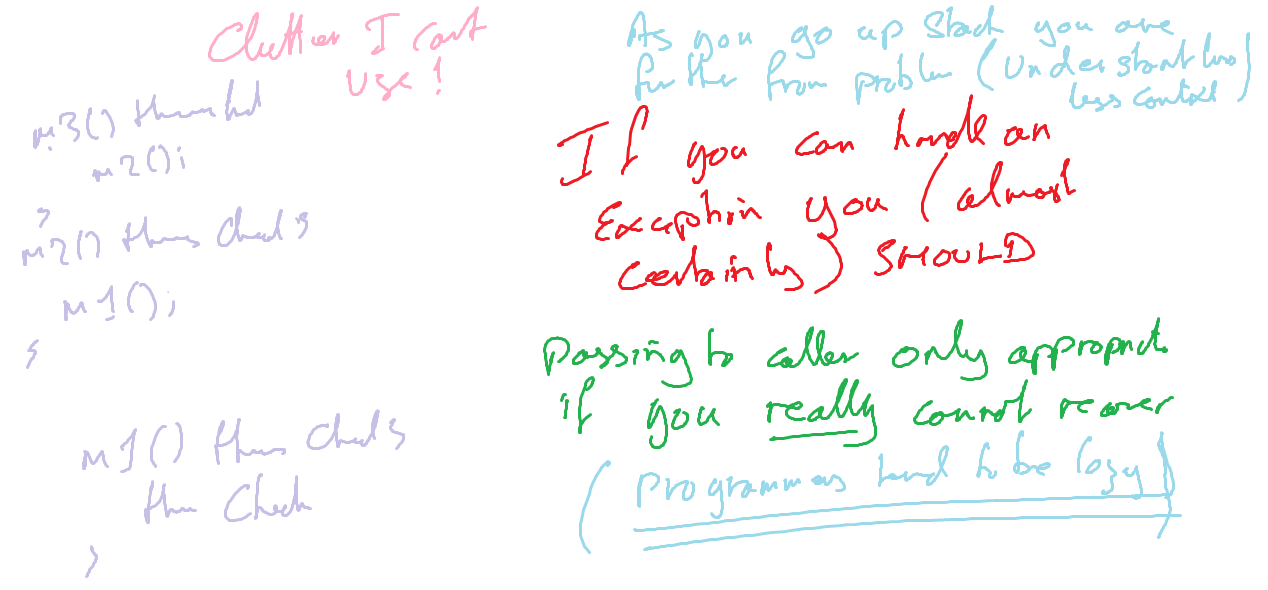 Clutter I can't
use!
m3() throws
m2();
}
m2() throws Check {
m1();
}
m1() throws Check {
throw Check
}
As you go up Stack you are
further from problem (Understand less
less context)
If you can handle an
Exception you (almost
certainly) SHOULD
Passing to caller only appropriate
if you really cannot recover
(programmers tend to be lazy)